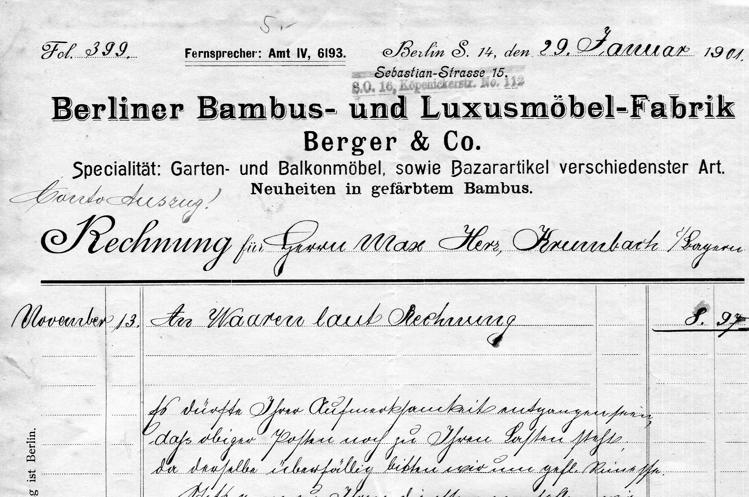 5.-
Fol. 399. Fernsprecher: Amt IV, 6193. Berlin S. 14, den 29. Januar 1901.
Sebastian-Strasse 15.
S.O. 16, Köpenickerstr. No. 112
Berliner Bambus- und Luxusmöbel-Fabrik
Berger & Co.
Specialität: Garten- und Balkonmöbel, sowie Bazarartikel verschiedenster Art.
Neuheiten in gefärbtem Bambus.
Conto Auszug!
Rechnung für Herrn Max Herz, Krumbach i/Bayern
November 13. An Waaren laut Rechnung 8. 97
Es dürfte Ihrer Aufmerksamkeit entgangen sein,
daß obiger Posten noch zu Ihren Lasten steht,
da derselbe überfällig bitten wir um gefl. Rimesse.
g ist Berlin.